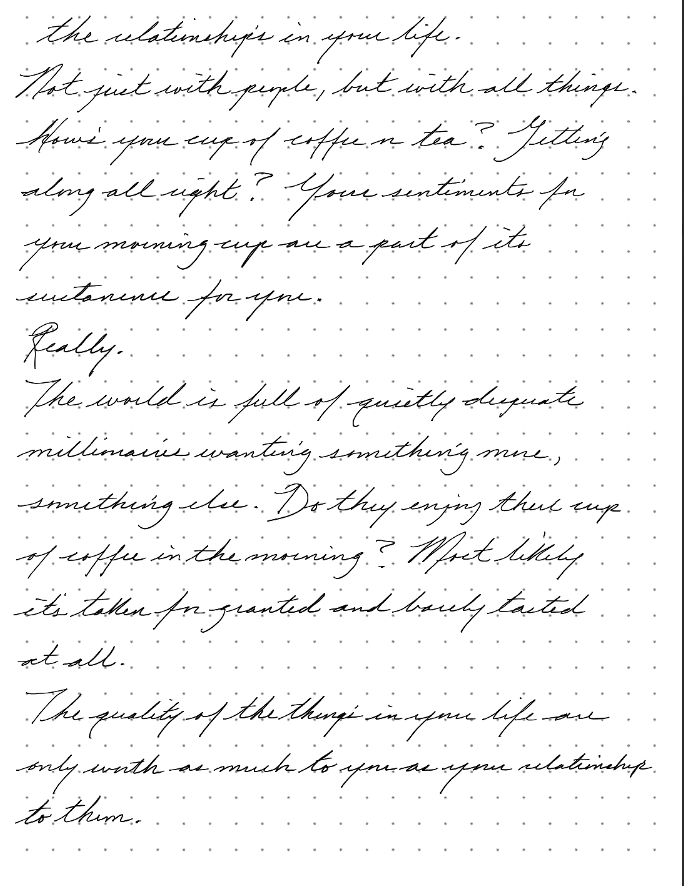 the relationships in your life.
Not just with people, but with all things.
How's your cup of coffee or tea? Getting
along all right? Your sentiments for
your morning cup are a part of its
sustenence for you.
Really.
The world is full of quietly desperate
millionaires wanting something more,
something else. Do they enjoy their cup
of coffee in the morning? Most likely
it's taken for granted and barely tasted
at all.
The quality of the things in your life are
only worth as much to you as your relationship
to them.